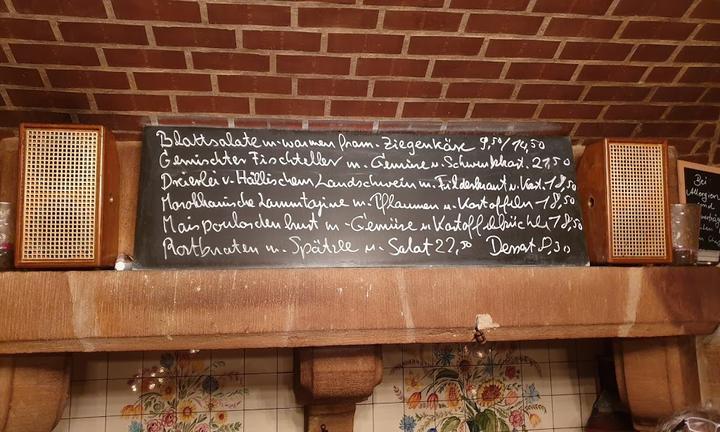 Blattsalate m. warmen fram. Ziegenkäse 9,50/14,50
Gemischter Fischteller m. Gemüse u. Schwenkkart. 21,50
Dreierlei v. Hällischem Landschwein m. Filderkraut u. Kart. 18,50
Marokkanische Lammtajine m. Pflaumen u. Kartoffeln 18,50
Maispoulardenbrust m. Gemüse u. Kartoffelküchle 18,50
Rostbraten m. Spätzle u. Salat 22,50 Dessert 8,30
Bei
Allergien